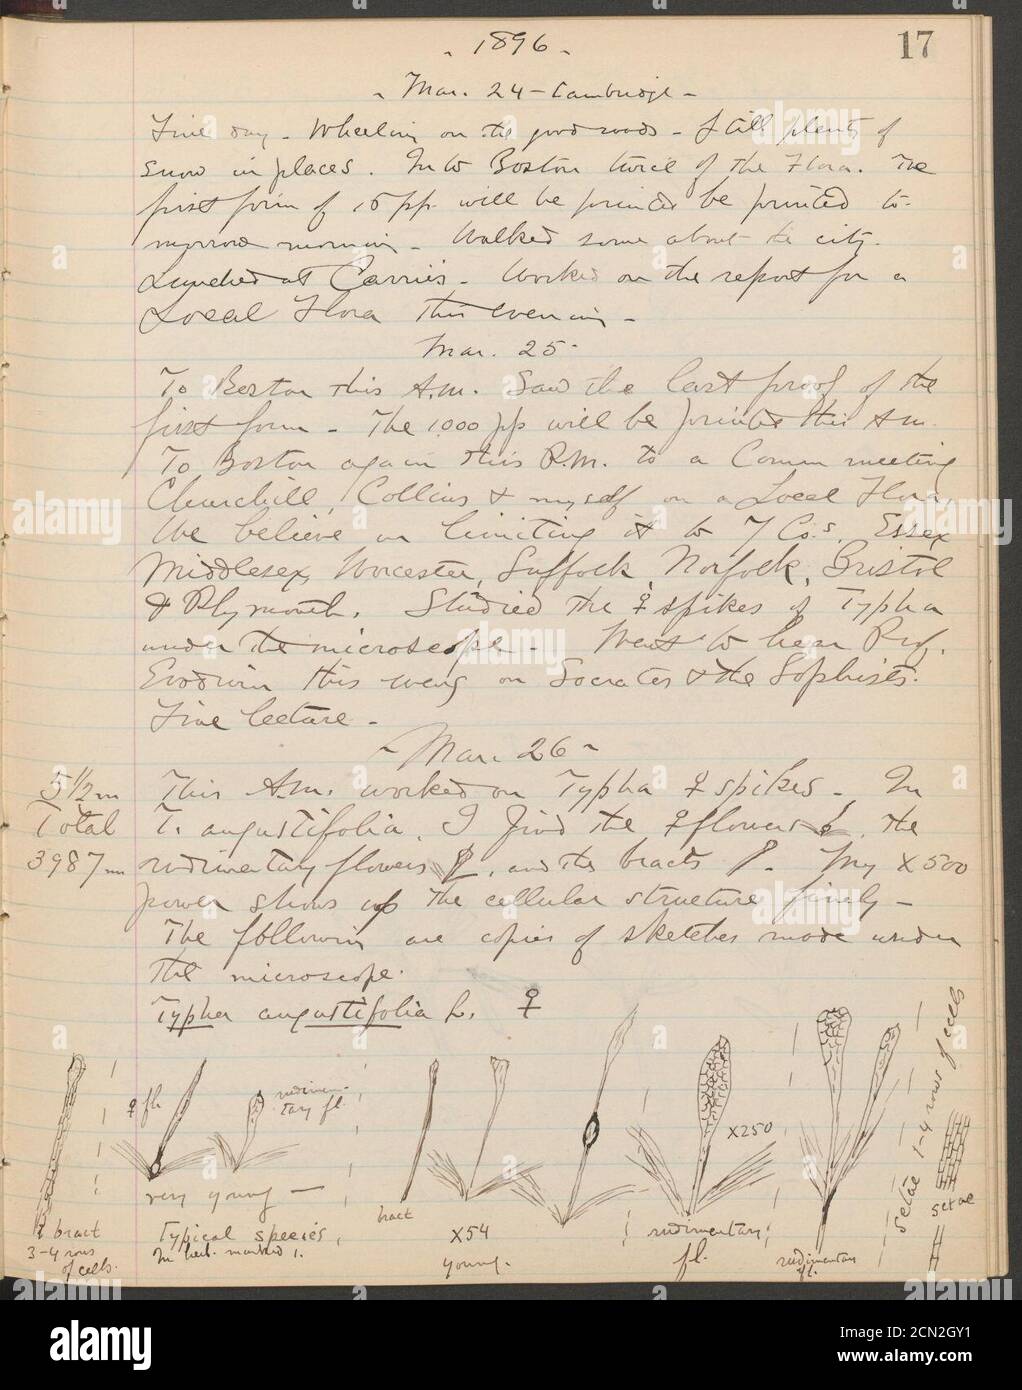 17
- 1896 -
- Mar. 24 - Cambridge -
Fine day - Wheeling on the good roads - Still plenty of
snow in places. In to Boston twice of the Flora. The
first form of 16 pp. will be printed be printed to-
morrow morning - Walked some about the city.
Lunched at Carrie's - Worked on the report for a
Local Flora this evening -
Mar. 25 -
To Boston this A.M. Saw the last proof of the
first form - The 1000 pp will be printed this A.M.
To Boston again this P.M. to a Comm meeting
Churchill, Collins & myself on a Local Flora,
We believe in limiting it to 7 Co.s, Essex
Middlesex, Worcester, Suffolk, Norfolk, Bristol
& Plymouth. Studied the ♀ spikes of Typha
under the microscope - Went to hear Prof.
Goodwin this eveng on Socrates & the Sophists.
Fine lecture -
- Mar. 26 -
5 1/2 m
Total
3987 m
This A.M. worked on Typha ♀ spikes - In
T. angustifolia, I find the ♀ flowers, the
rudimentary flowers, and the bracts. My x500
power shows up the cellular structure finely -
The following are copies of sketches made under
the microscope.
Typha angustifolia L. ♀
♀ fl.
rudimen-
tary fl.
very young -
bract
3-4 rows
of cells.
Typical species,
In herb. marked 1.
bract
x54
young.
x250
rudimentary
fl.
rudimentary
fl.
setae 1-4 rows of cells
setae
alamy
Image ID: 2CN2GY1
www.alamy.com